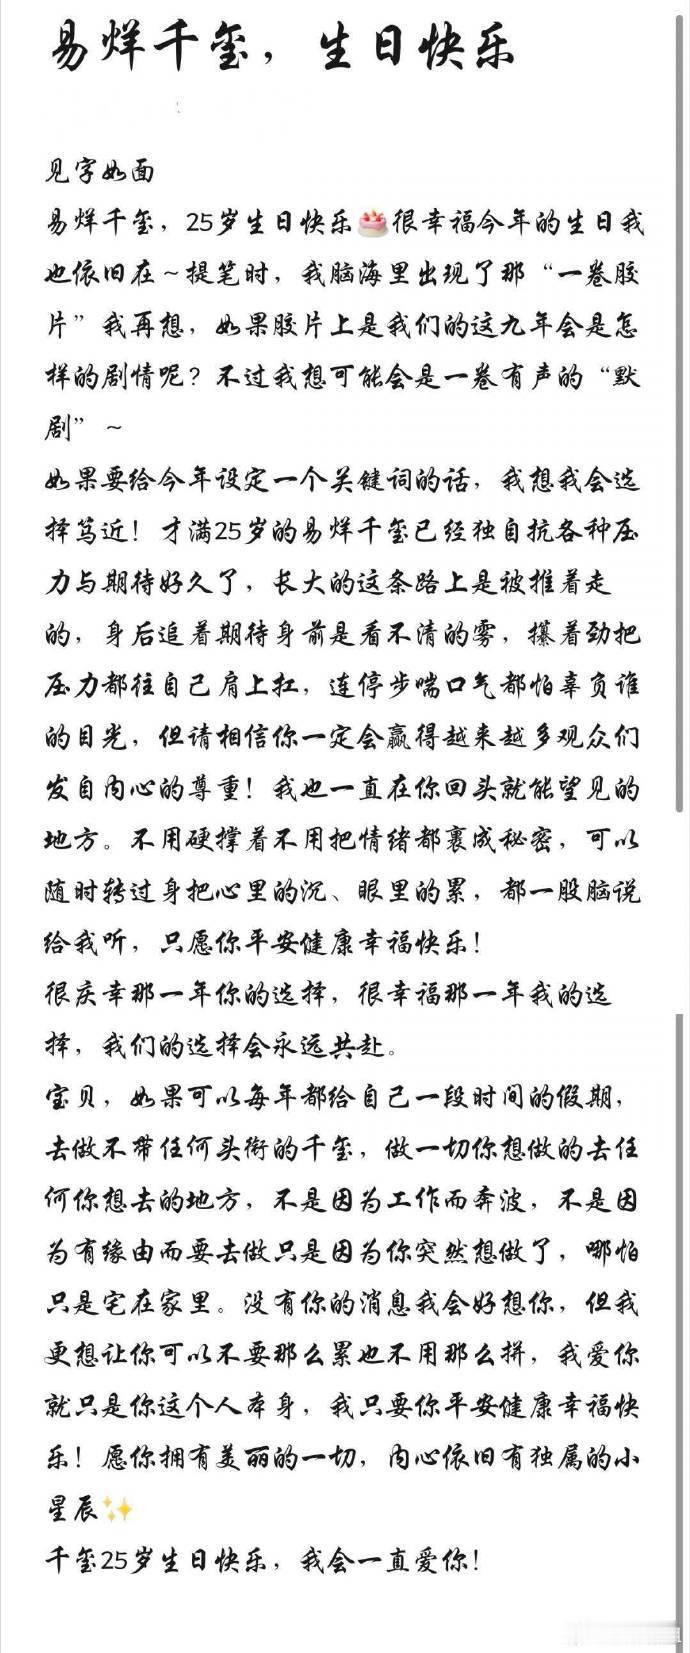 易烊千玺，生日快乐
见字如面
易烊千玺，25岁生日快乐🎂很幸福今年的生日我
也依旧在～提笔时，我脑海里出现了那“一卷胶
片”我再想，如果胶片上是我们的这九年会是怎
样的剧情呢？不过我想可能会是一卷有声的“默
剧”～
如果要给今年设定一个关键词的话，我想我会选
择笃近！才满25岁的易烊千玺已经独自抗各种压
力与期待好久了，长大的这条路上是被推着走
的，身后追着期待身前是看不清的雾，攥着劲把
压力都往自己肩上扛，连停步喘口气都怕辜负谁
的目光，但请相信你一定会赢得越来越多观众们
发自内心的尊重！我也一直在你回头就能望见的
地方。不用硬撑着不用把情绪都裹成秘密，可以
随时转过身把心里的沉、眼里的累，都一股脑说
给我听，只愿你平安健康幸福快乐！
很庆幸那一年你的选择，很幸福那一年我的选
择，我们的选择会永远共赴。
宝贝，如果可以每年都给自己一段时间的假期，
去做不带任何头衔的千玺，做一切你想做的去任
何你想去的地方，不是因为工作而奔波，不是因
为有缘由而要去做只是因为你突然想做了，哪怕
只是宅在家里。没有你的消息我会好想你，但我
更想让你可以不要那么累也不用那么拼，我爱你
就只是你这个人本身，我只要你平安健康幸福快
乐！愿你拥有美丽的一切，内心依旧有独属的小
星辰✨
千玺25岁生日快乐，我会一直爱你！